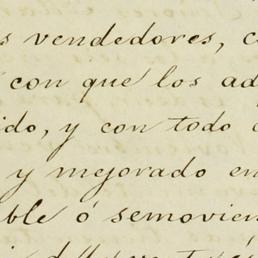 s vendedores, c
con que los ad
ido, y con todo
y mejorado en
ble ó semovien